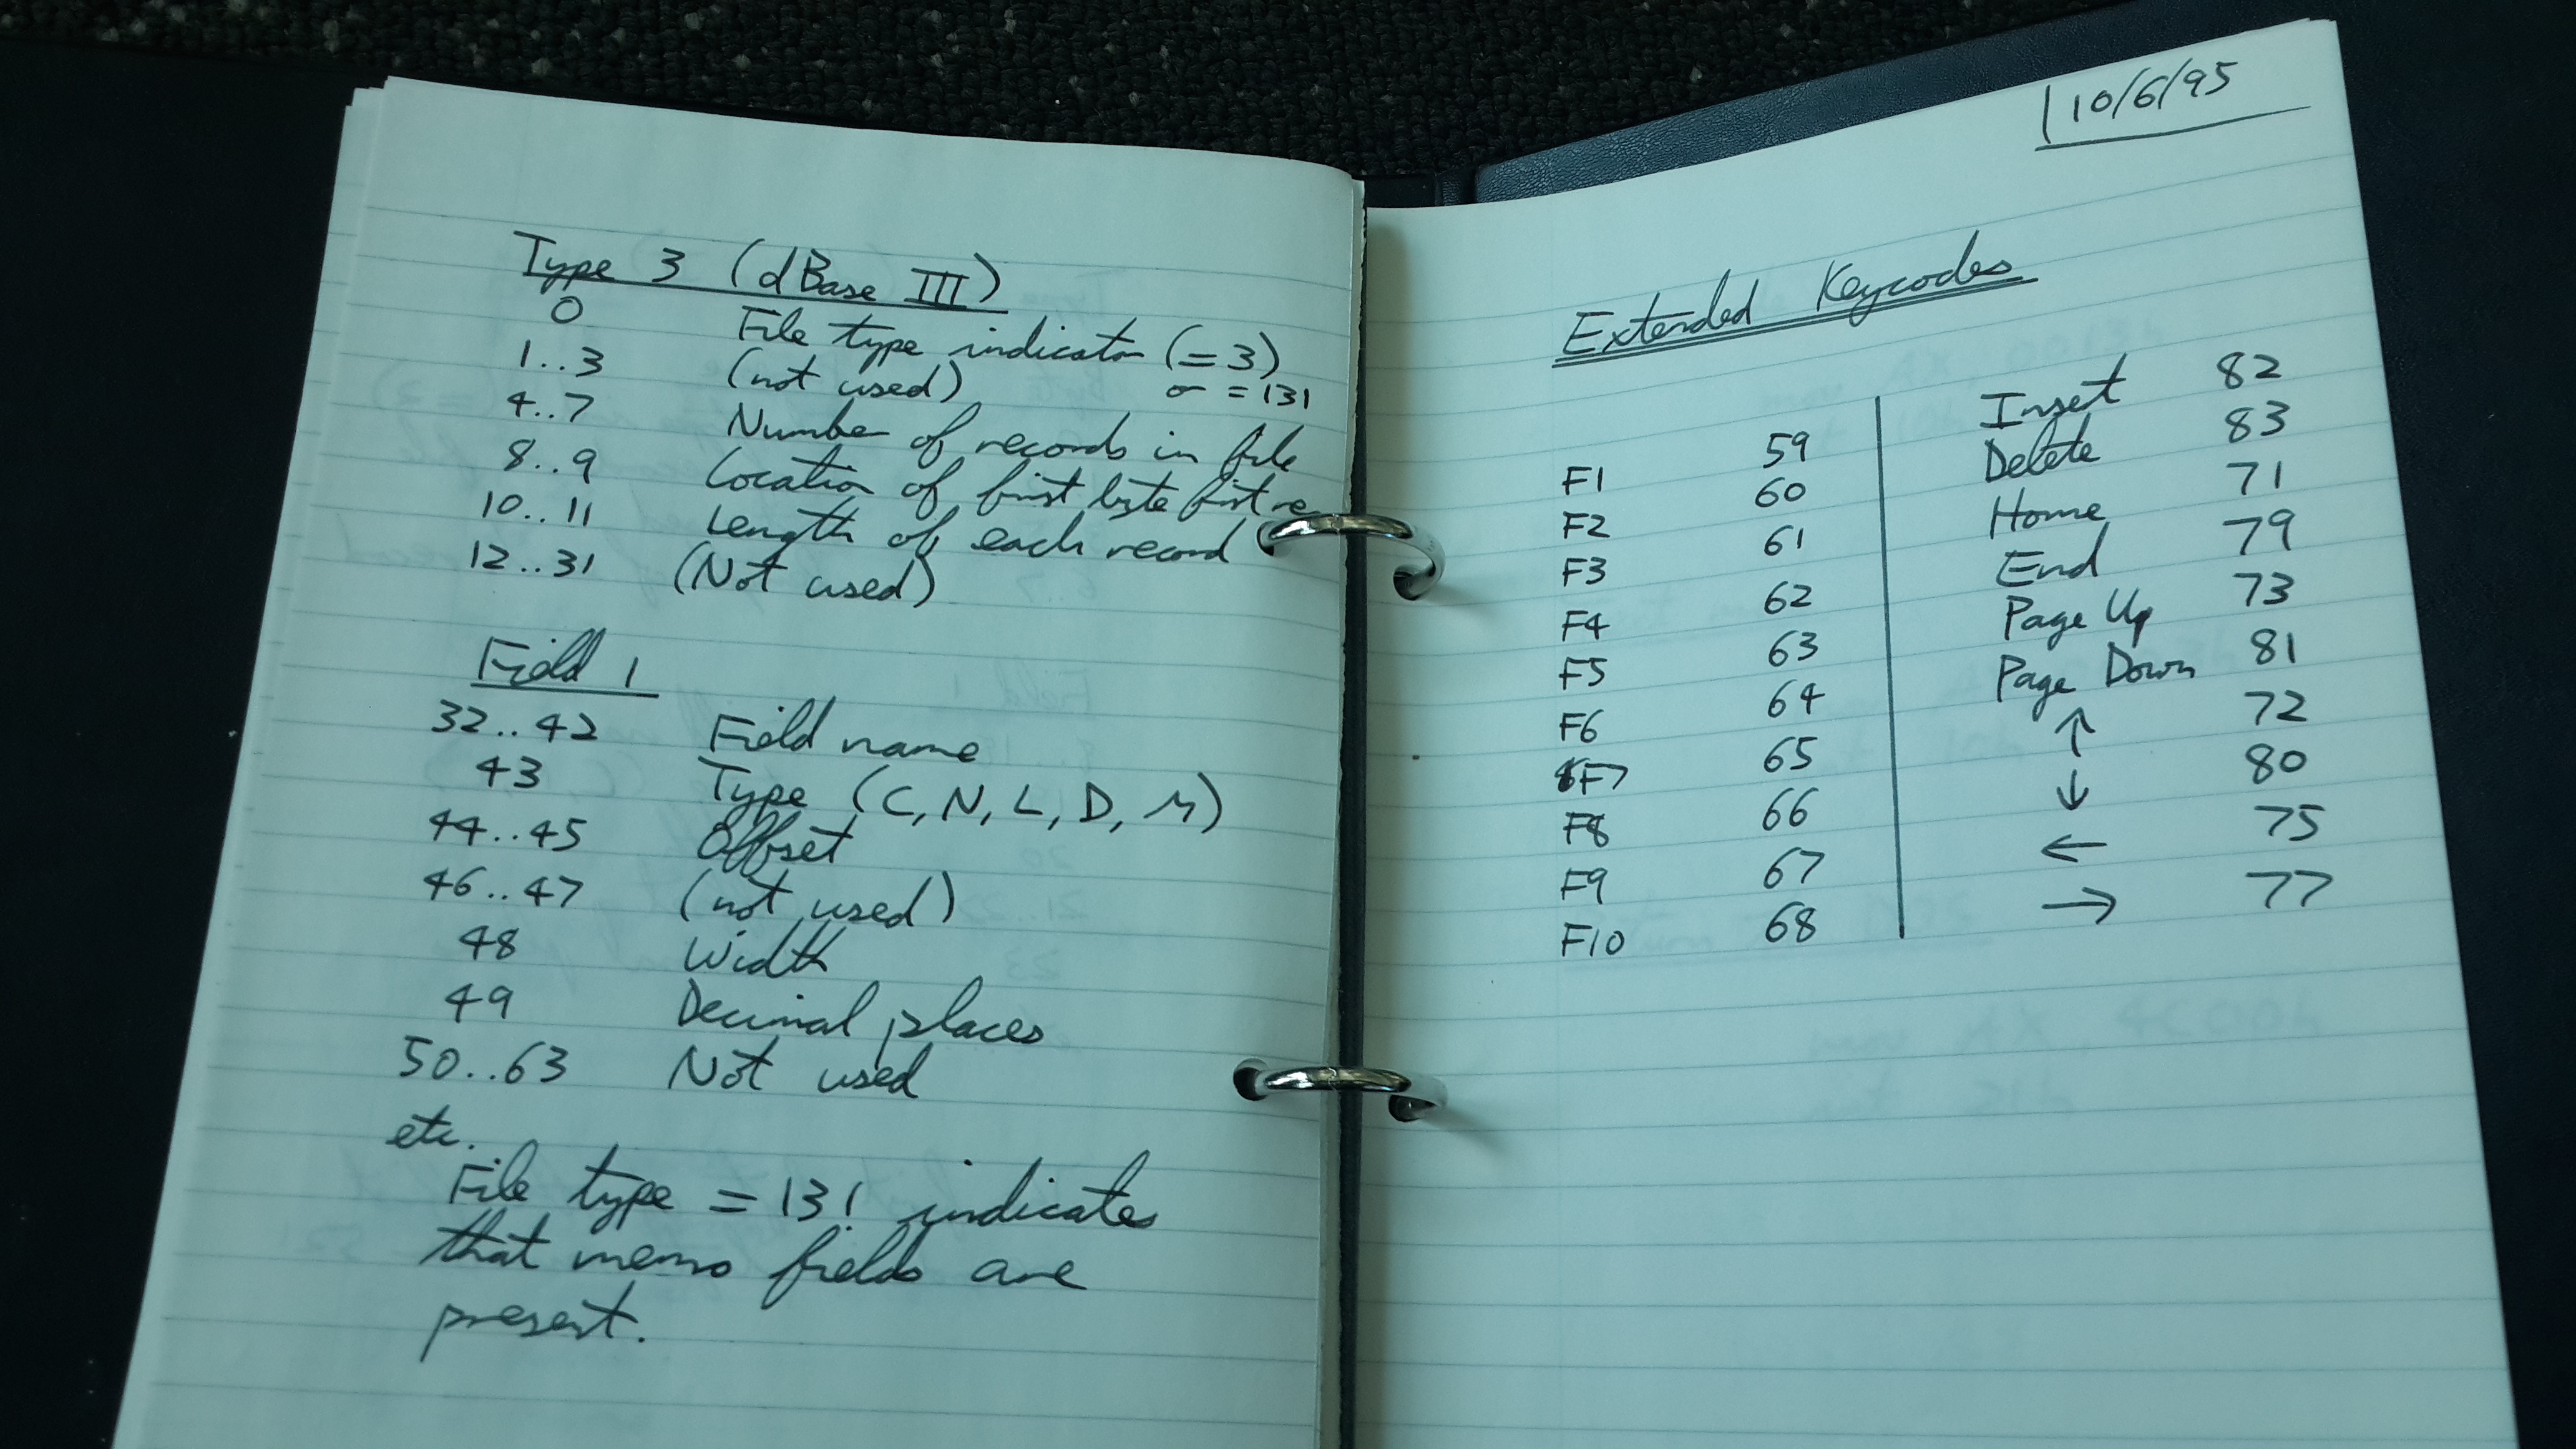 Type 3 (dBase III)
0 File type indicator (=3)
or = 131
1..3 (not used)
4..7 Number of records in file
8..9 Location of first byte first re
10..11 Length of each record
12..31 (Not used)
Field 1
32..42 Field name
43 Type (C, N, L, D, M)
44..45 Offset
46..47 (not used)
48 Width
49 Decimal places
50..63 Not used
etc.
File type = 131 indicates
that memo fields are
present.
10/6/95
Extended Keycodes
F1 59
F2 60
F3 61
F4 62
F5 63
F6 64
F7 65
F8 66
F9 67
F10 68
Insert 82
Delete 83
Home 71
End 79
Page Up 73
Page Down 81
↑ 72
↓ 80
← 75
→ 77